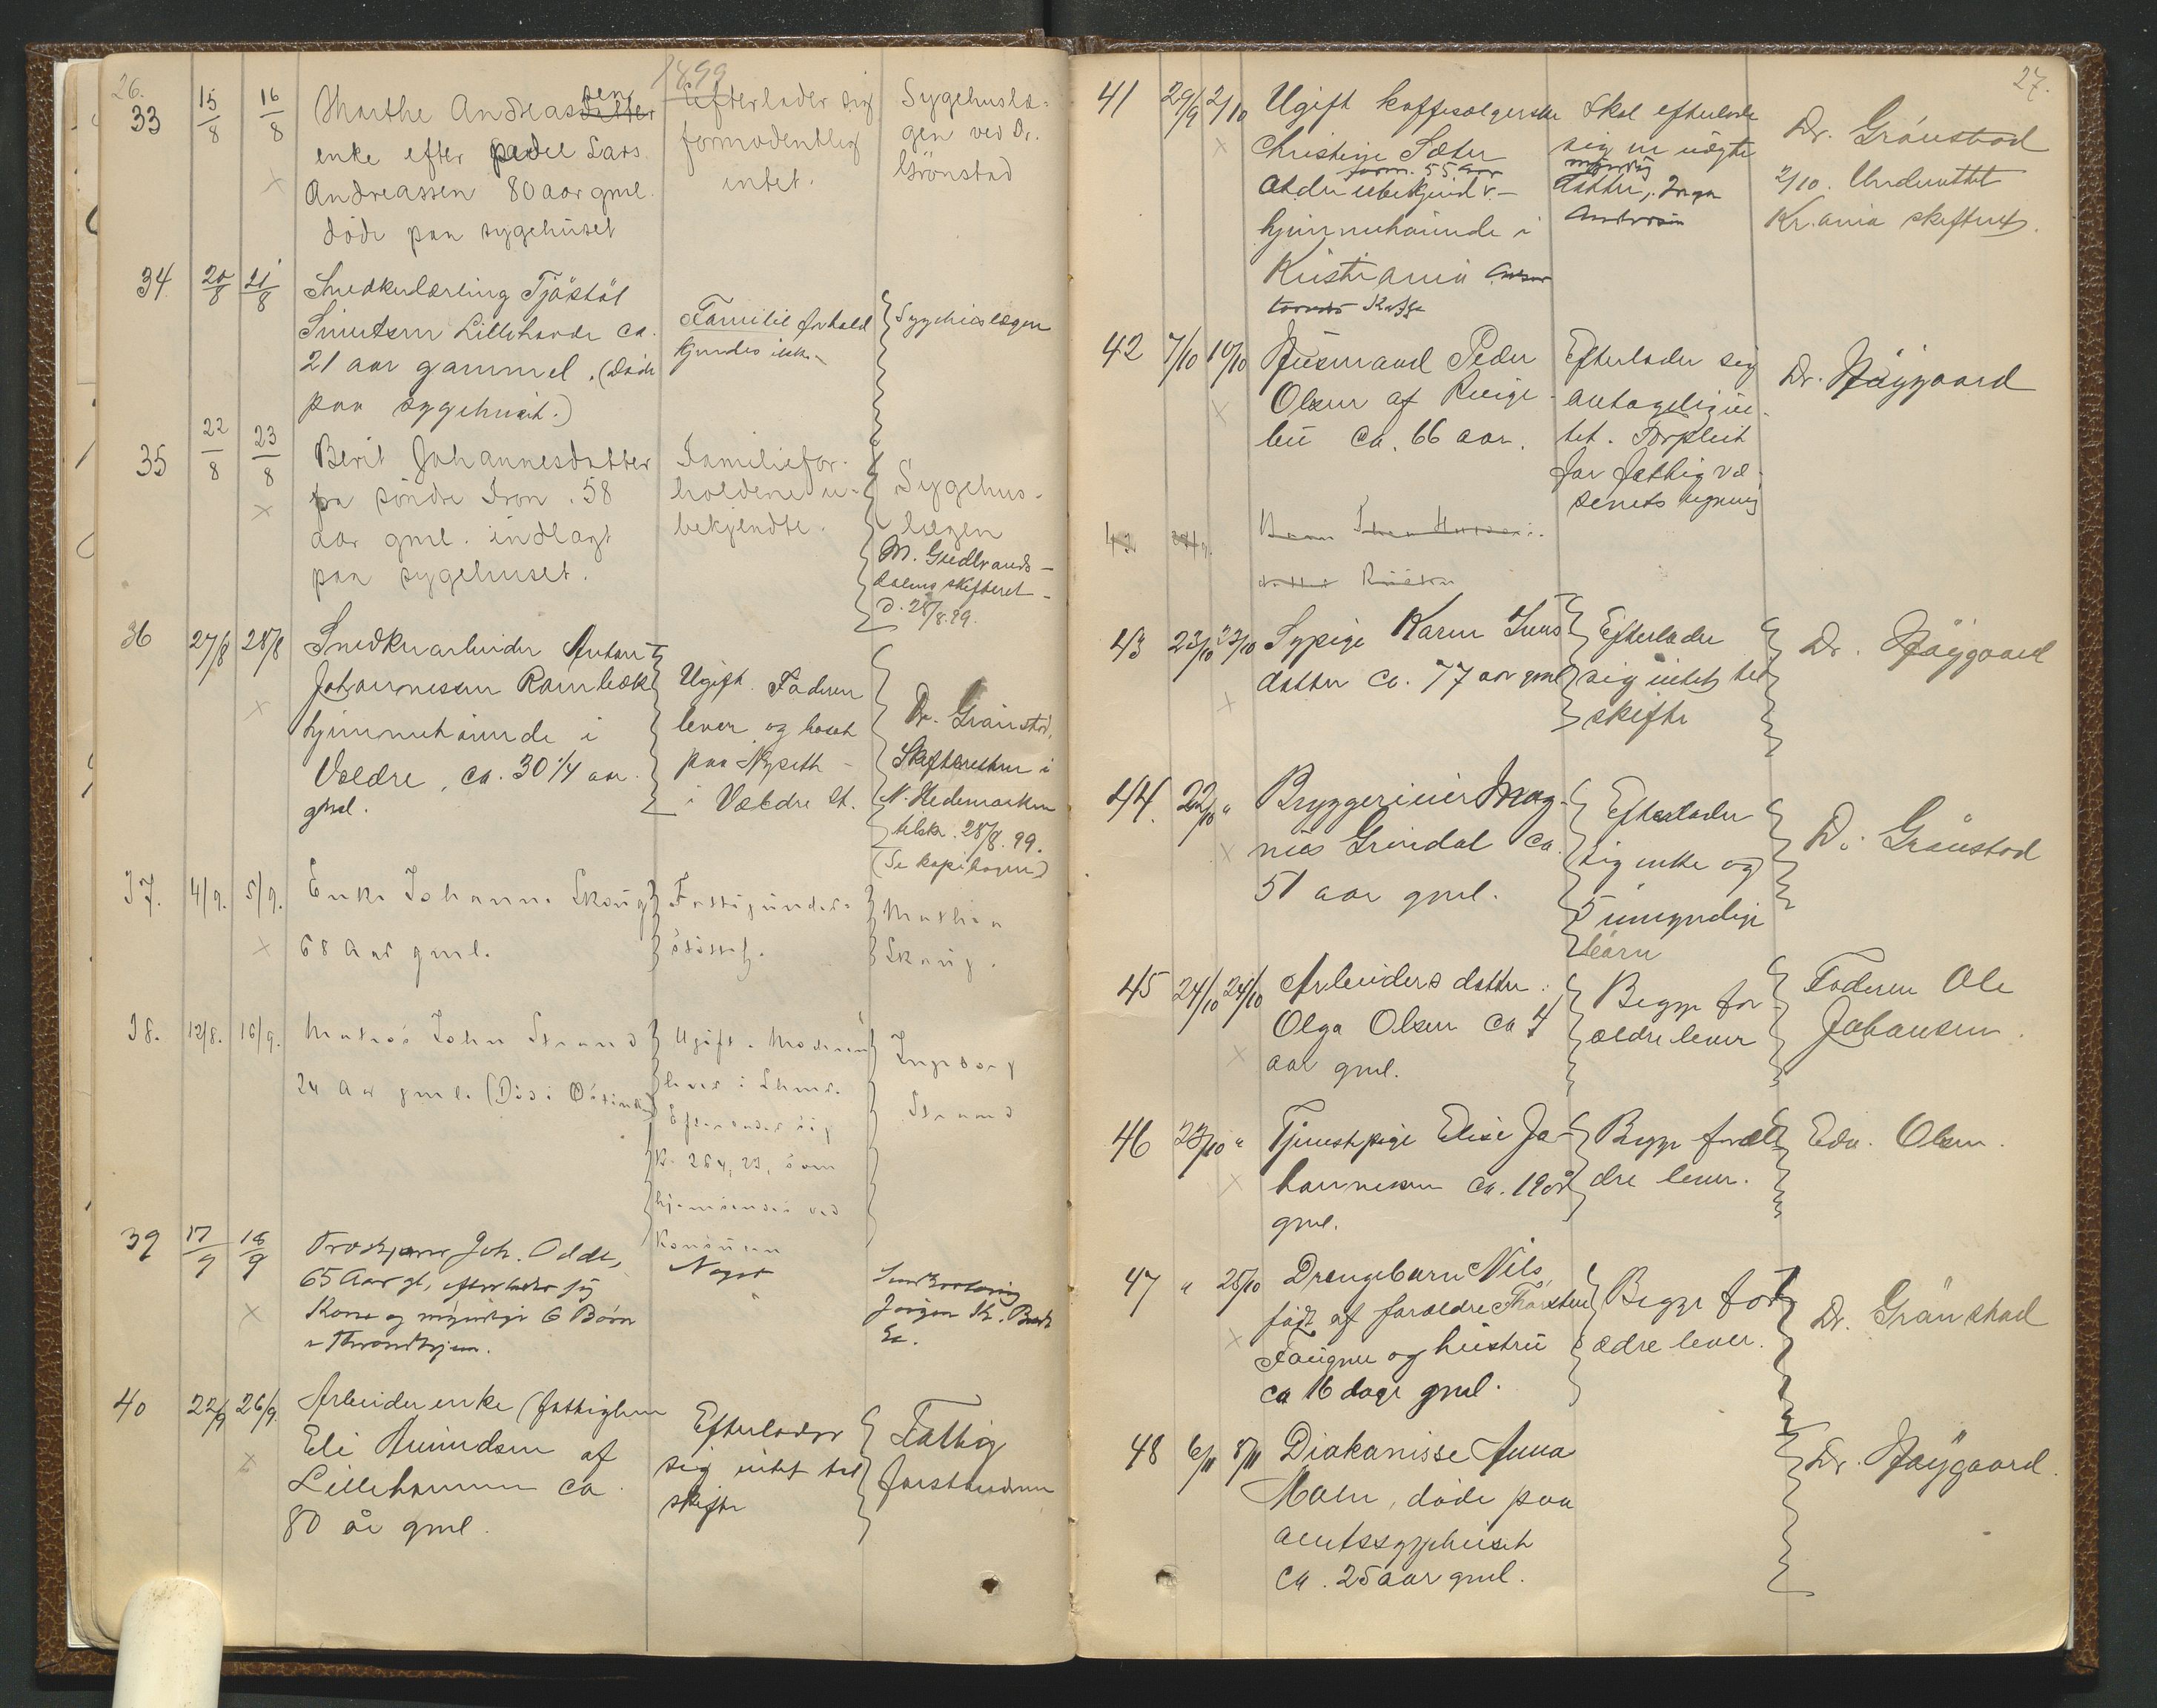 26.
1899
33 15/8 16/8 Marthe Andreassen Efterlader sig Sygehuslæ-
enke efter Lars formodentlig gen ved Dr.
Andreassen 80 aar gml. intet. Grönstad
döde paa sygehuset
34 20/8 21/8 Snedkerlærling Tjöstöl
Lillehovde ca. Familieforhold Sygehuslægen
21 aar gammel. (Döde kjendes ikke.
paa sygehuset.)
35 22/8 23/8 Berit Johannesdatter Familiefor-
fra söndre Fron. 58 holdene u- Sygehus-
aar gml. indlagt bekjendte. lægen
paa sygehuset. N. Gudbrands-
dalens skifteret
d. 28/8.99.
36 27/8 28/8 Snedkerarbeider Anton
Johannesen Rambæk Ugift. Faderen
hjemmehörende i lever og bosat Dr. Grönstad.
Valdre, ca. 30 1/4 aar paa Nyseth Skifteretten i
gml. i Valdre st. N. Hedemarken
tilskr. 28/8 99.
(Se kopibogen)
37. 4/9. 5/9. Enke Johanne Skoug Fattigunder- Mathea
68 Aar gml. stöttet. Skoug.
38. 12/8. 16/9. Matros John Strand Ugift. Moderen Ingeborg
24 Aar gml. (Död i lever i Lhmr. Strand
Efterlader sig
Kr. 264,23, som
hjemsendes ved
Konsulen
39 17/9 18/9 Joh. Odde, Noget
65 Aar gl, efterlader sig
Kone og myndige 6 Børn Jörgen
i Throndhjem.
40 22/9 26/9. Arbeiderenke (fattiglem
Eli Amundsen af Efterlader Fattig
Lillehammer ca. sig intet til forstanderen
80 år gml. skifte
27.
41 29/9 2/10 Ugift kaffesælgerske Skal efterlade
Christine Sæter sig en uægte Dr. Grönstad
form. 55 aar myndig
Alder ubekjendt datter, Inga 2/10. Underrettet
hjemmehörende i Kr.ania skifteret.
Kristiania
42 7/10 10/10 Husmand Peder Efterlader sig Dr. Höygaard
Olsen af Ringe- antageligin-
bu ca. 66 aar. tet. Forpleiet
for fattigvæ-
senets regning
43 23/10 23/10 Sypige Karen Jens Efterlader Dr. Höygaard
datter ca. 77 aar gml sig intet til
skifte
44. 22/10 " Bryggerieier Mag- Efterlader
nus Grindal ca. sig enke og Dr. Grönstad
51 aar gml. 5 umyndige
börn
45 24/10 24/10 Arbeiders datter Begge for Faderen Ole
Olga Olsen ca 4 ældre lever Johansen.
aar gml.
46 23/10 " Tjenestepige Elise Jo- Begge foræl- Edv. Olsen.
hannesen ca. 19 år dre lever.
gml.
47 " 25/10 Drengebarn Nils,
født af forældre Thorsten Begge for Dr. Grönstad
Faugner og hustru ældre lever.
ca 16 dage gml.
48 6/11 8/11 Diakonisse Anna Dr. Höygaard.
Moen, döde paa
amtssygehuset
ca. 25 aar gml.